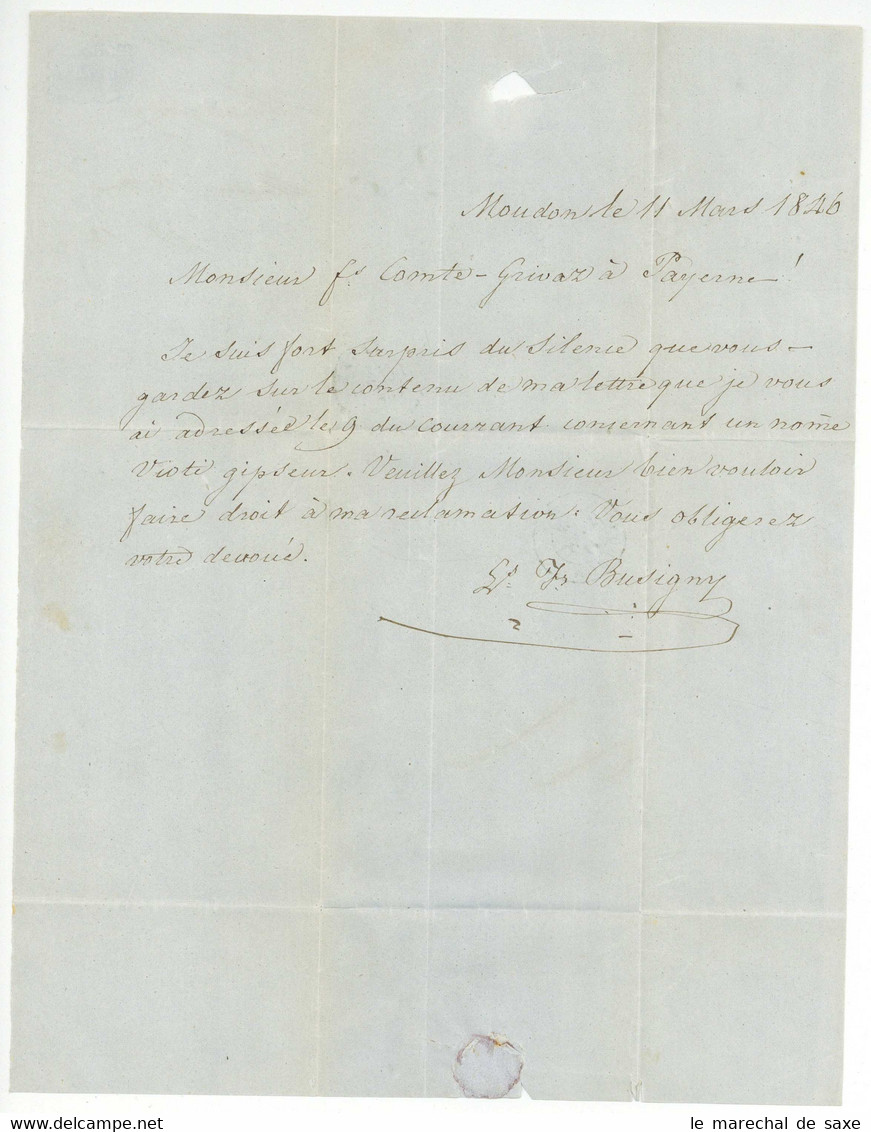 Moudon le 11 Mars 1846
Monsieur fs. Comte-Grivaz à Payerne!
Je suis fort surpris du silence que vous-
gardez sur le contenu de ma lettre que je vous
ai adressée le 9 du courrant concernant un nommé
Vioti gipseur. Veuillez Monsieur bien vouloir
faire droit à ma reclamation. Vous obligerez
votre devoué.
Ls. Fs. Busigny
le marechal de saxe